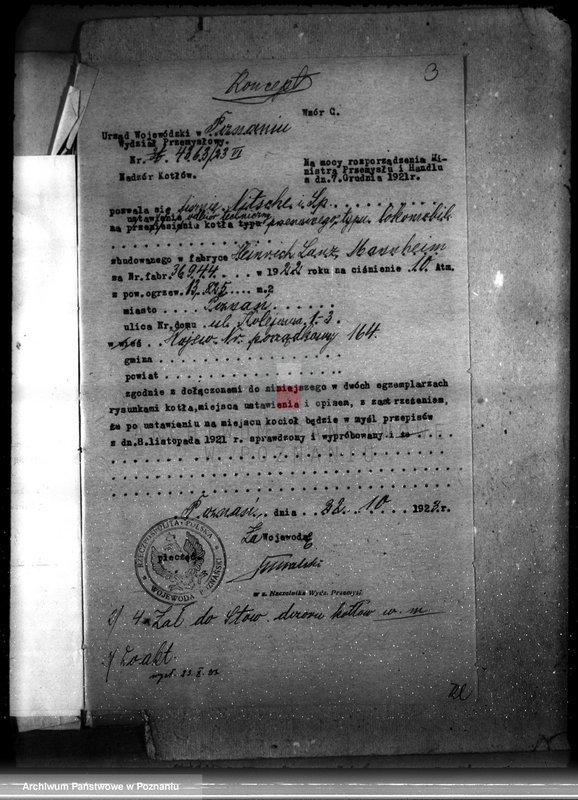 Koncept
3
Wzór C.
Urząd Wojewódzki w Poznaniu
Wydział Przemysłowy.
Nr. 4363/23 VI
Nadzór Kotłów.
Na mocy rozporządzenia Mi-
nistra Przemysłu i Handlu
z dn.7.Grudnia 1921r.
pozwala się firmie Nitsche i Sp.
ustawienie odbiór techniczny
na przeniesienie kotła typu przenośnego, typu lokomobil.
zbudowanego w fabryce Heinrich Lanz, Mannheim
za Nr.fabr. 36944 w 1922 roku na ciśnienie 10. Atm.
z pow.ogrzew. 13.825 m.2
miasto Poznań
ulica Nr.domu ul. Kolejowa 1-3
w wieś Wojew. Nr. porządkowy 164
gmina
powiat
zgodnie z dołączonemi do niniejszego w dwóch egzemplarzach
rysunkami kotła, miejsca ustawienia i opisem, z zastrzeżeniem,
że po ustawieniu na miejscu kocioł będzie w myśl przepisów
z dn.8.listopada 1921 r. sprawdzony i wypróbowany i że
Poznań, dnia 22. 10 1923.r.
Za Wojewodę
RZECZPOSPOLITA POLSKA
WOJEWODA POZNAŃSKI
pieczęć
w z. Naczelnika Wydz. Przemysł.
2/ 4 Zał do Stow. dozoru kotłów w. m.
3/ Do akt.
Archiwum Państwowe w Poznaniu